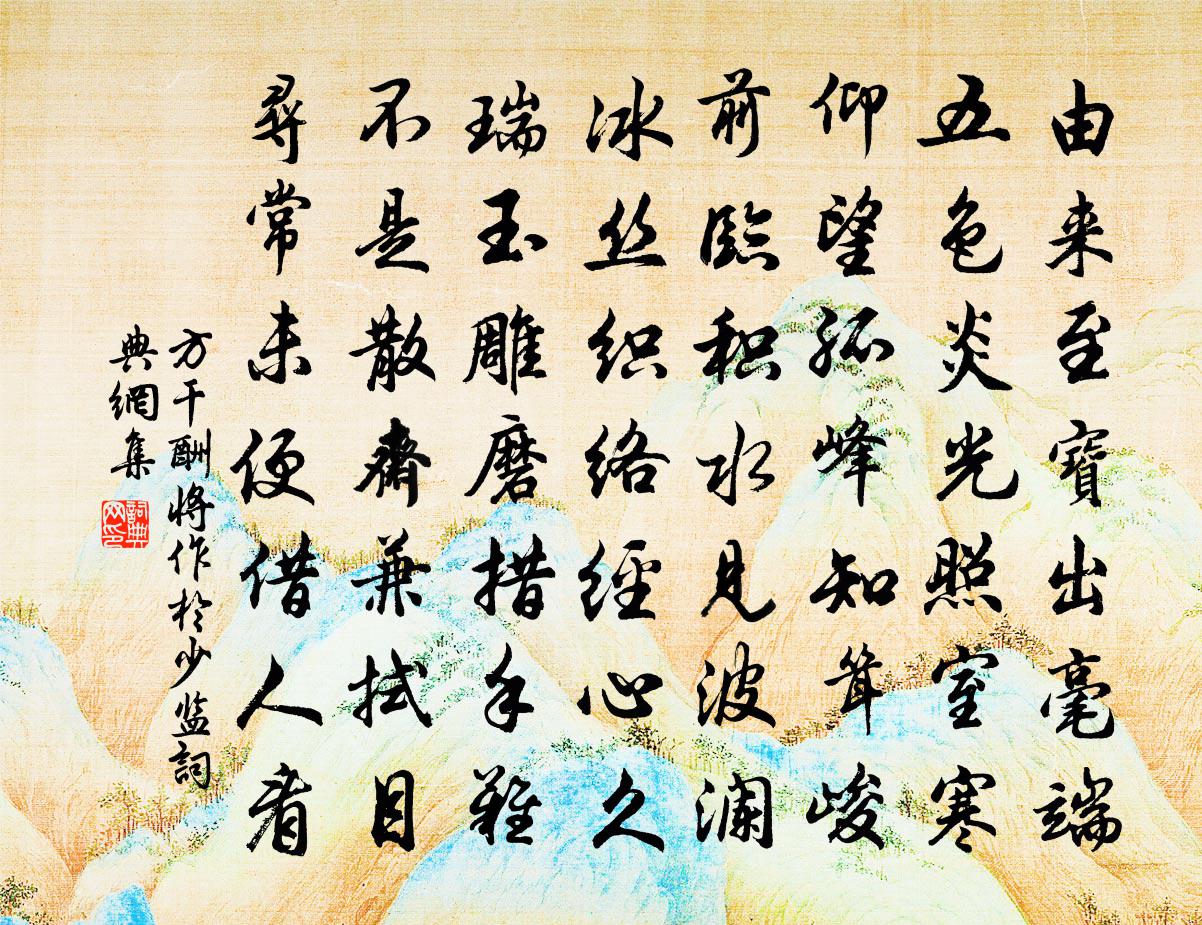 由来至寶出毫端
五色炎光照室寒
仰望孤峰知耸峻
前臨积水見波澜
冰丝织络經心久
瑞玉雕磨措手難
不是散齋兼拭目
尋常未便借人看
方干酬將作於少监詞
典網集
詞典
网印